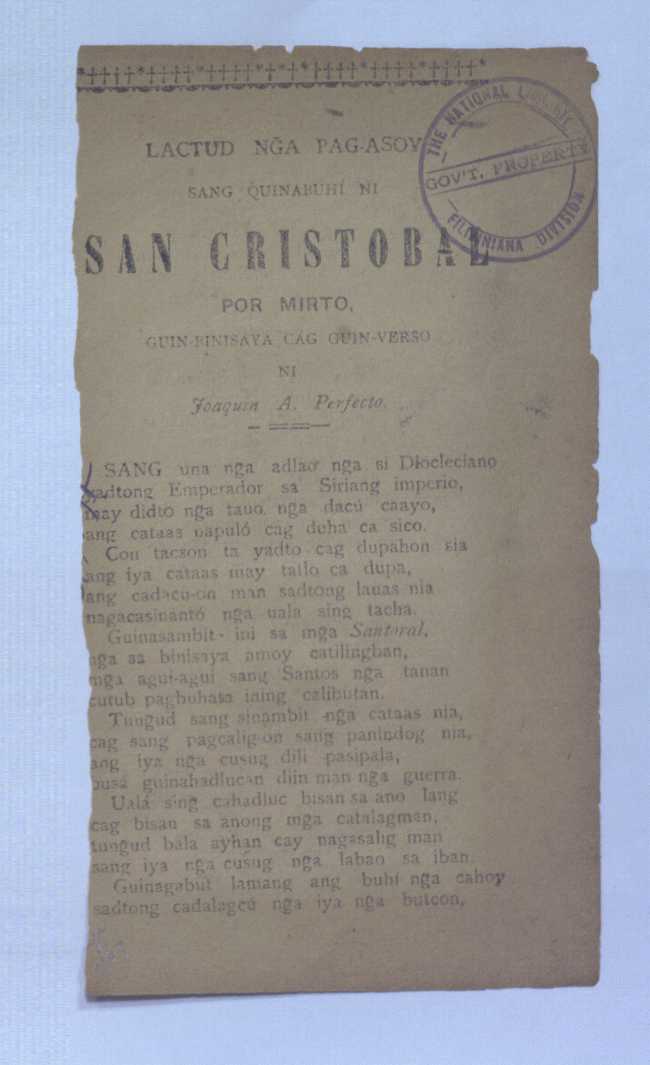 LACTUD NG̃A PAG-ASOY
SANG QUINABUHÍ NI
SAN CRISTOBAL
POR MIRTO,
GUIN-BINISAYA CAG GUIN-VERSO
NI
Joaquin A. Perfecto.
THE NATIONAL LIBRARY
GOV'T. PROPERTY
FILIPINIANA DIVISION
SANG una ng̃a adlao ng̃a si Diocleciano
yadtong Emperador sa Siriang imperio,
may didto ng̃a tauo ng̃a dacú caayo,
ang cataas napuló cag duha ca sico.
Con tacson ta yadto cag dupahon sia
ang iya cataas may tatlo ca dupa,
ang cadacu-on man sadtong lauas nia
nagacasinantó ng̃a uala sing tacha.
Guinasambit ini sa mg̃a Santoral,
ng̃a sa binisaya amoy catilingban,
mg̃a agui-agui sang Santos ng̃a tanan
cutub pagbuhata ining calibutan.
Tungud sang sinambit ng̃a cataas nia,
cag sang pagcalig-on sang panindog nia,
ang iya ng̃a cusug dili pasipala,
busa guinahadlucan diin man ng̃a guerra.
Ualá sing cahadluc bisan sa ano lang
cag bisan sa anong mg̃a catalagman,
tungud bala ayhan cay nagasalig man
sang iya ng̃a cusug ng̃a labao sa iban.
Guinagabut lamang ang buhi ng̃a cahoy
sadtong cadalagcú ng̃a iya ng̃a butcon,